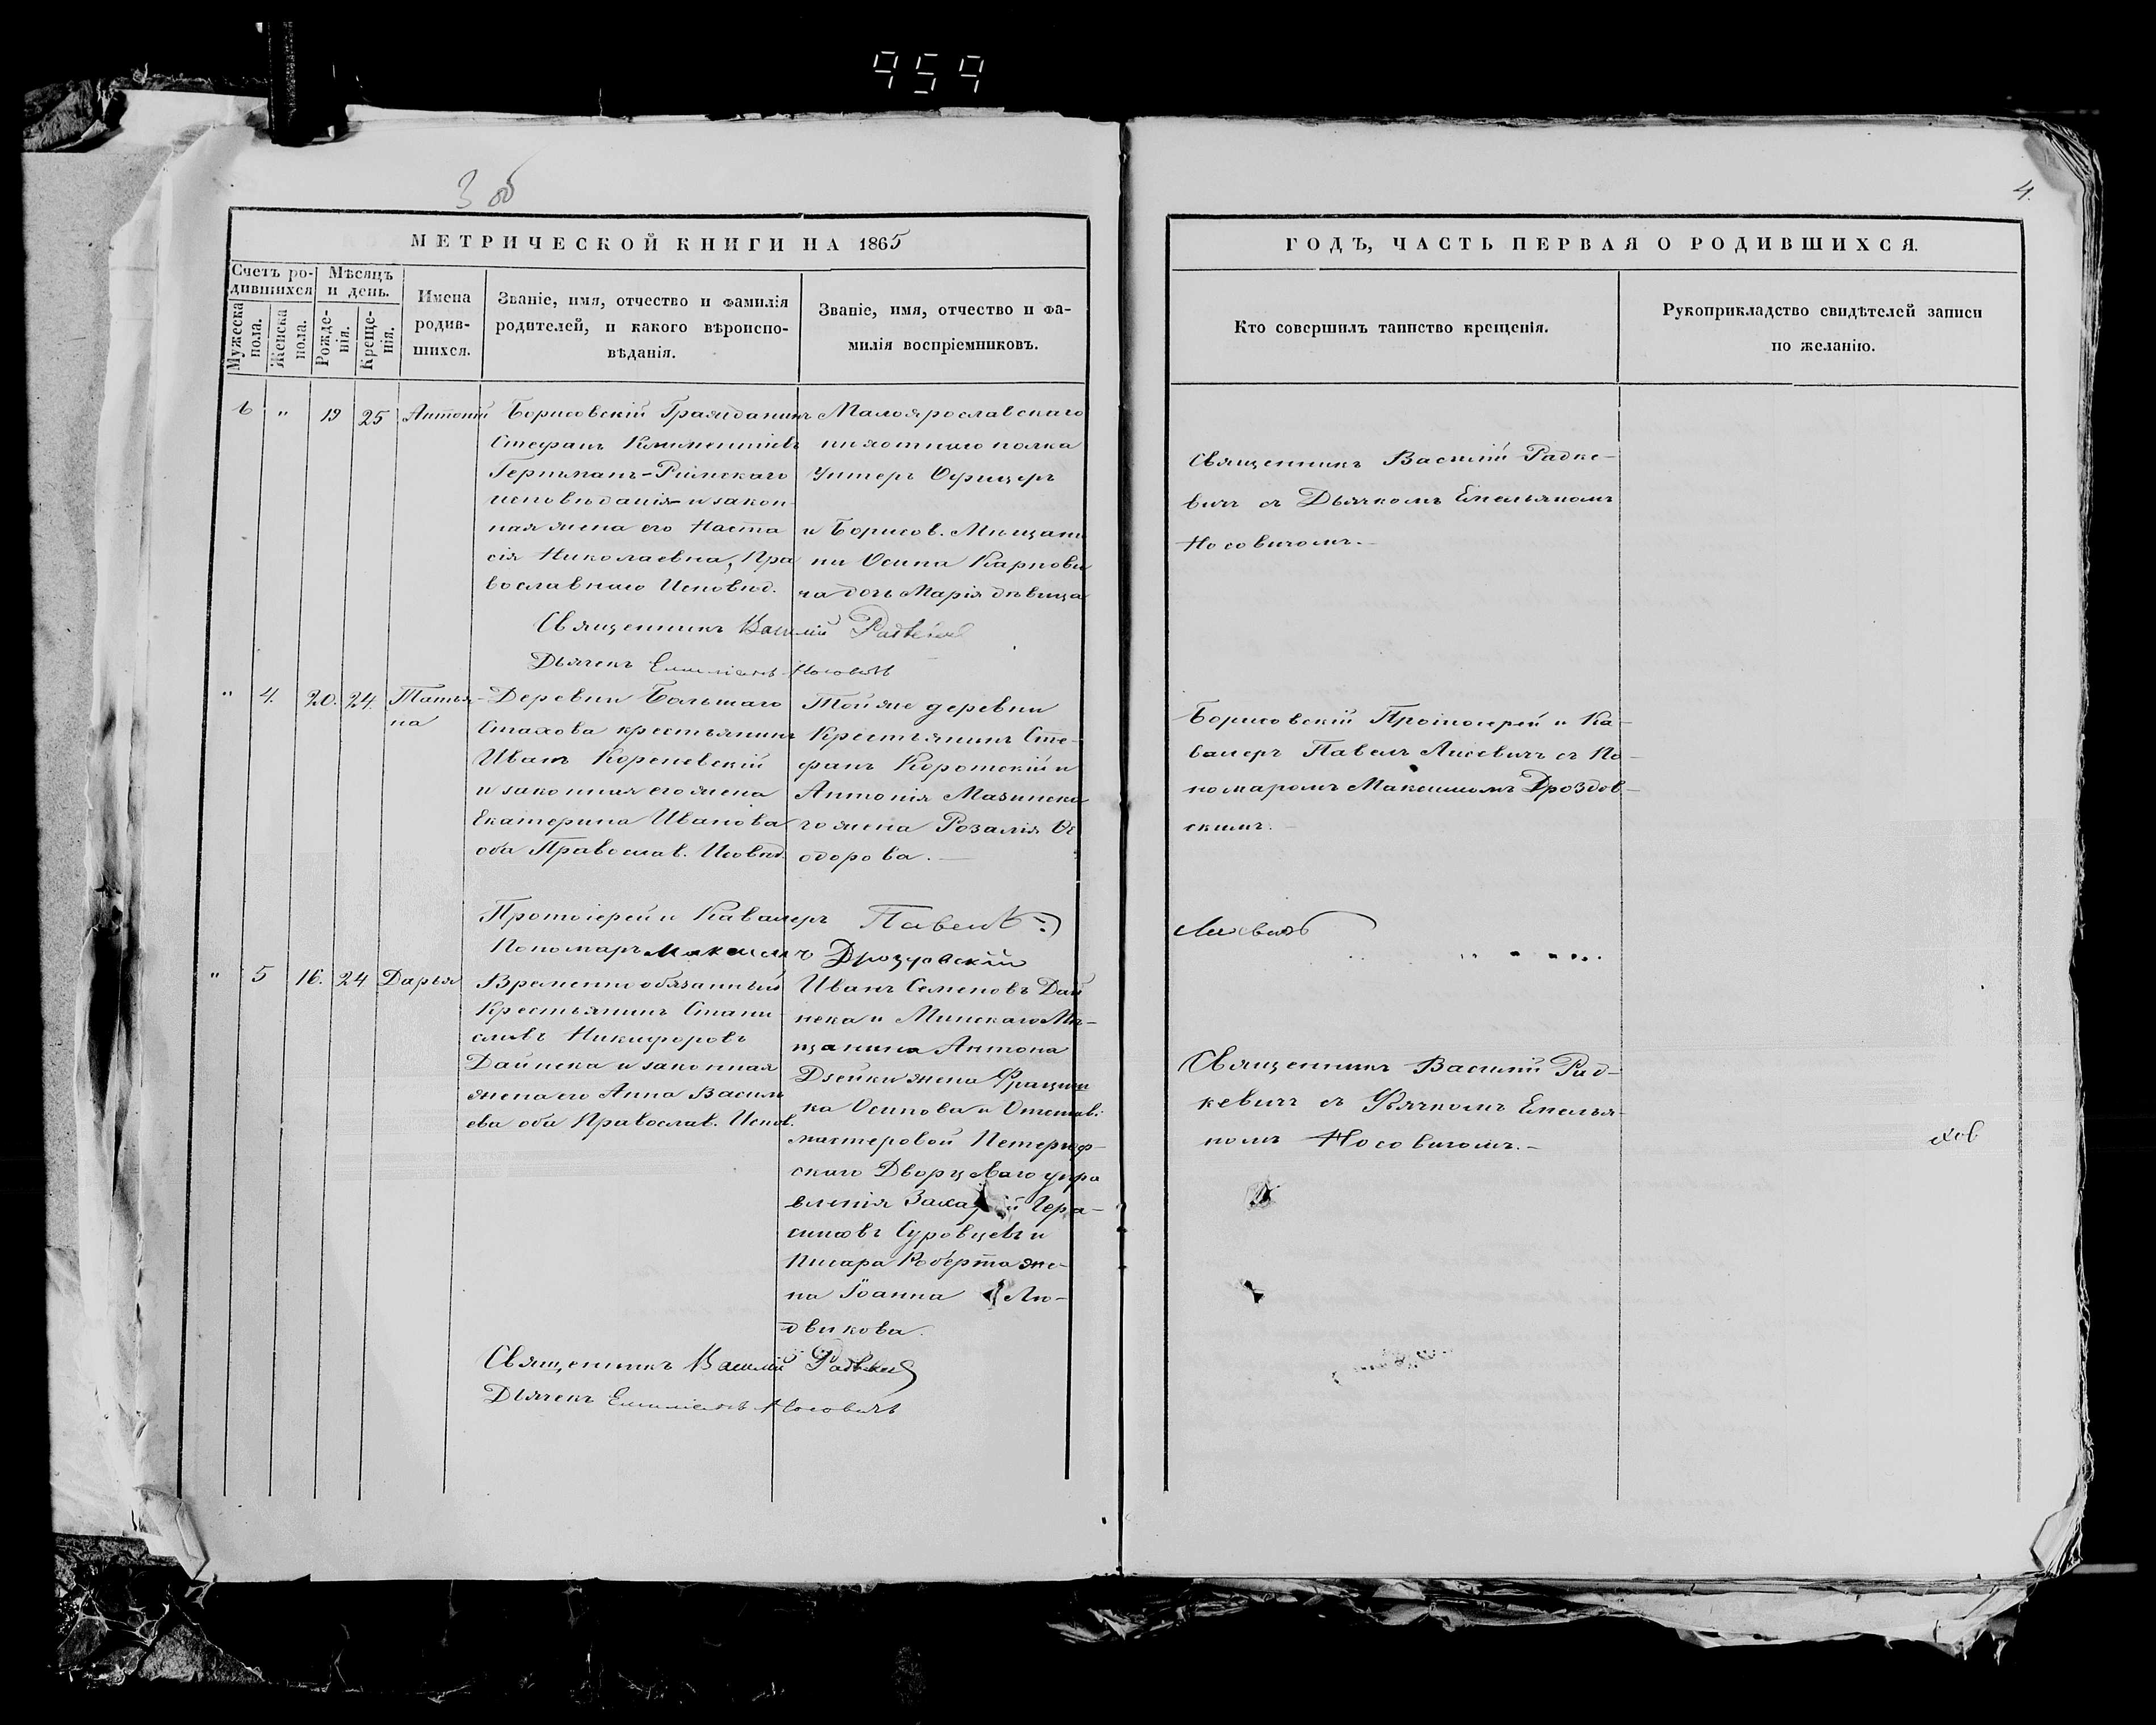 959
3 об
4.
МЕТРИЧЕСКОЙ КНИГИ НА 1865
ГОДЪ, ЧАСТЬ ПЕРВАЯ О РОДИВШИХСЯ.
Счетъ ро-
дившихся
Мѣсяцъ
и день.
Мужеска
пола.
Женска
пола.
Рожде-
нія.
Креще-
нія.
Имена
родив-
шихся.
Званіе, имя, отчество и фамилія
родителей, и какого вѣроиспо-
вѣданія.
Званіе, имя, отчество и фа-
милія воспріемниковъ.
Кто совершилъ таинство крещенія.
Рукоприкладство свидѣтелей записи
по желанію.
" 19 25 Антоній
Борисовскій Гражданинъ
Стефанъ Климентіевъ
Римскаго
исповѣданія и закон-
ная жена его Наста
сія Николаевна, Пра
вославнаго Исповѣд.
Малоярославскаго
пихотнаго полка
Унтеръ Офицеръ
и Борисов. Мѣщани
на Осипа Карпови
ча дочь Марія дѣвица
Священникъ Василій Радке-
вичъ съ Дьячкомъ Емельяномъ
Носовичомъ.-
Священникъ Василій Радкевич
Дьячекъ Емиліанъ Носовичъ
" 4. 20. 24. Татья-
на
Деревни Большаго
Стахова крестьянинъ
Иванъ Кореневскій
и законная его жена
Екатерина Иванова
оба Православ. Исовѣд.
Той же деревни
Крестьянинъ Сте-
фанъ Коротскій и
Антонія Мазинска
го жена Розалія Ѳе
одорова.
Борисовскій Протоіерей и Ка-
валеръ Павелъ Лисевичъ съ По-
номаромъ Максимомъ Дроздов-
скимъ.
Протоіерей и Кавалеръ Павелъ
Пономаръ Максимъ Дроздовскій
" 5 16. 24 Дарья
Временно обязанный
Крестьянинъ Стани
славъ Никифоровъ
Дайнека и законная
жена его Анна Васил
ева оба Православ. Испов.
Иванъ Семеновъ Дай
нека и Минскаго Мѣ-
щанина Антона
Дзейки жена Францишка
Осипова и Отстав.
мастеровой Петергоф-
скаго Дворцоваго упра
вленія Захарій Гера-
симовъ Суровцевъ и
Писара Роберта же-
на Іоанна Лю-
двикова.
Священникъ Василій Рад-
кевичъ съ Дьячкомъ Емелья-
номъ Носовичомъ.-
Священникъ Василій Радкевич
Дьячекъ Емиліанъ Носовичъ